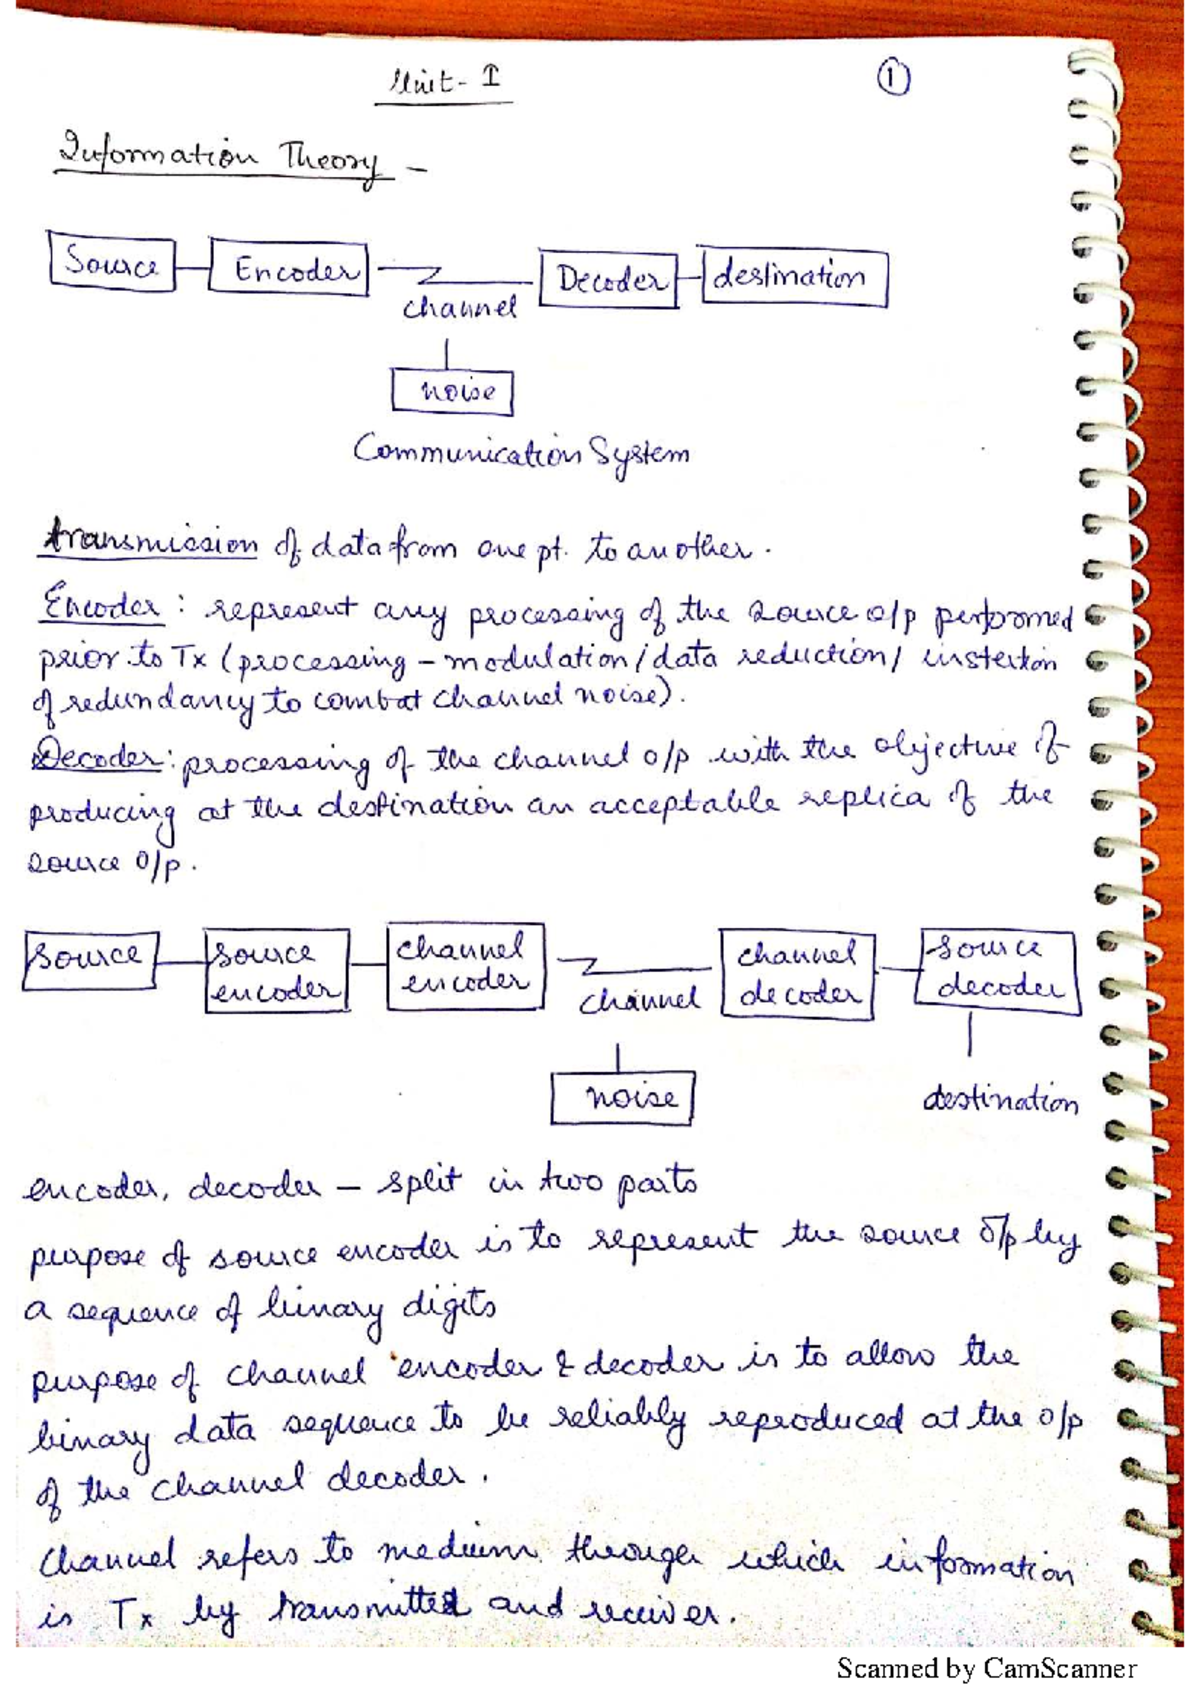 Unit - I
1
Information Theory -
Source Encoder Decoder destination
channel
noise
Communication System
transmission of data from one pt. to another.
Encoder : represent any processing of the source o/p performed
prior to Tx (processing - modulation/data reduction/ instertion
of redundancy to combat channel noise).
Decoder : processing of the channel o/p with the objective of
producing at the destination an acceptable replica of the
source o/p.
source source encoder channel encoder channel decoder source decoder
channel
noise
destination
encoder, decoder - split in two parts
purpose of source encoder is to represent the source o/p by
a sequence of binary digits
purpose of channel encoder & decoder is to allow the
binary data sequence to be reliably reproduced at the o/p
of the channel decoder.
Channel refers to medium through which information
is Tx by transmitted and receiver.
Scanned by CamScanner